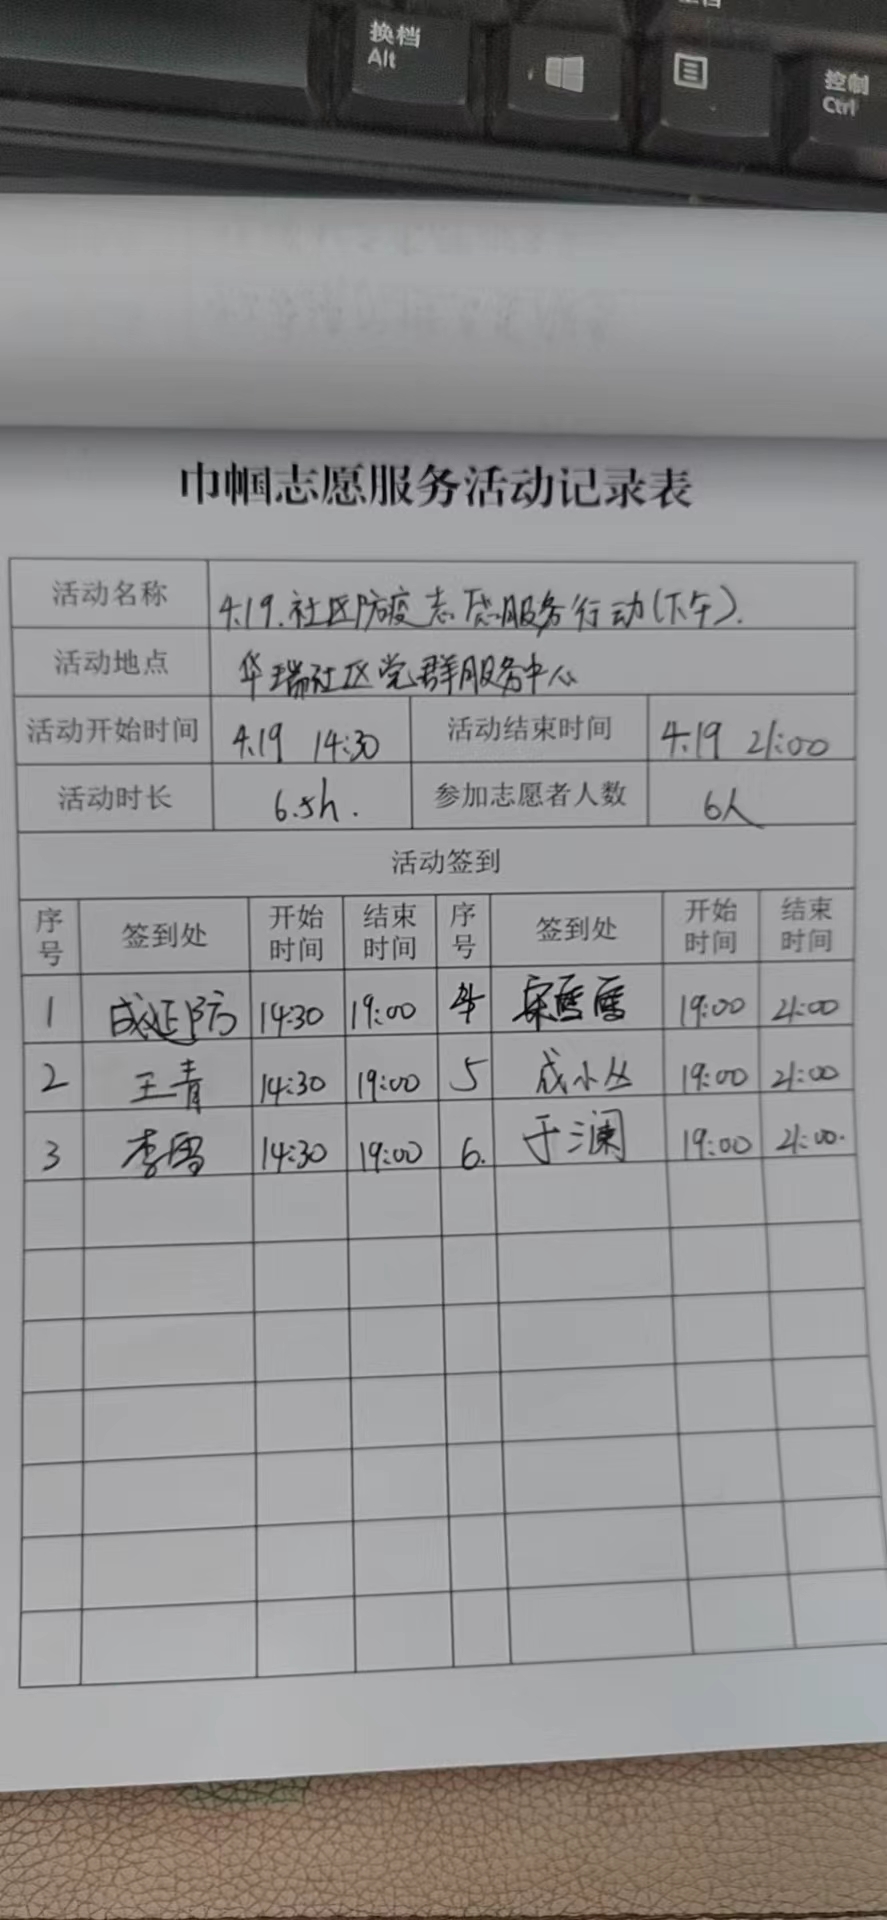 换档
Alt
控制
Ctrl
巾帼志愿服务活动记录表
活动名称 4.19.社区防疫志愿服务行动(下午).
活动地点 华瑞社区党群服务中心
活动开始时间 4.19 14:30 活动结束时间 4.19 21:00
活动时长 6.5h. 参加志愿者人数 6人
活动签到
序号 签到处 开始时间 结束时间 序号 签到处 开始时间 结束时间
1 成延防 14:30 19:00 4 19:00 21:00
2 王青 14:30 19:00 5 成小丛 19:00 21:00
3 李雪 14:30 19:00 6. 于澜 19:00 21:00.